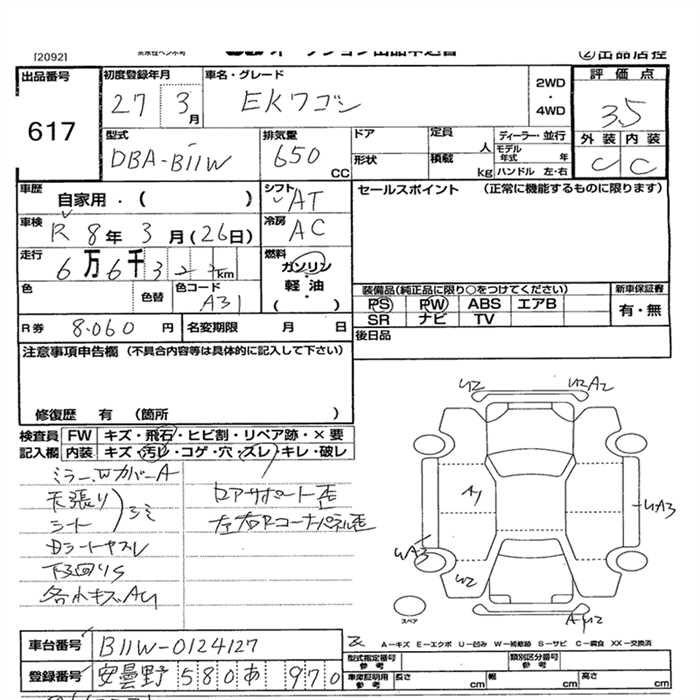 [2092]
②出品店控
出品番号
617
初度登録年月
27 3月
車名・グレード
EKワゴン
2WD
・
4WD
評価点
3.5
外装 内装
C C
型式
DBA-B11W
排気量
650 CC
ドア
定員 人
形状
積載 kg
ディーラー・並行
モデル年式 年
ハンドル 左・右
車歴
自家用・( )
シフト
AT
セールスポイント (正常に機能するものに限ります)
車検
R 8年 3月(26日)
冷房
AC
走行
6万6千3 km
燃料
ガソリン
・
軽油
・
( )
色
色替
色コード
A31
装備品(純正品に限り○をつけてください)
PS PW ABS エアB
SR ナビ TV
新車保証書
有・無
R券 8.060円
名変期限 月 日
後日品
注意事項申告欄 (不具合内容等は具体的に記入して下さい)
修復歴 有 (箇所 )
検査員 FW キズ・飛石・ヒビ割・リペア跡・×要
記入欄 内装 キズ・汚レ・コゲ・穴・ズレ・キレ・破レ
ミラー、Wカバー A
天張り
シート
シミ
下回りS
各小キズAU
リアサポート歪
左右Rコーナーパネル歪
U2
U2A2
A1
UA3
UA3
U2
スペア
A-キズ E-エクボ U-凹み W-補修跡 S-サビ C-腐食 XX-交換済
車台番号 B11W-0124127
登録番号 安曇野 580 あ 970
型式指定番号 参考
類別区分番号 参考
車庫証明用 参考
長さ cm 幅 cm 高さ cm